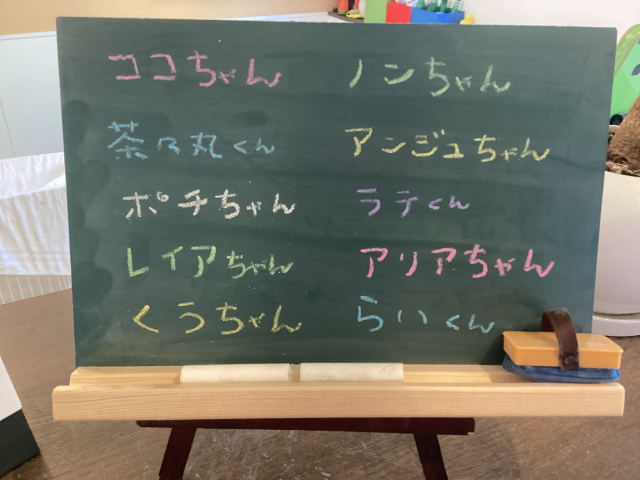 ココちゃん
ノンちゃん
茶々丸くん
アンジュちゃん
ポチちゃん
ラテくん
レイアちゃん
アリアちゃん
くうちゃん
らいくん